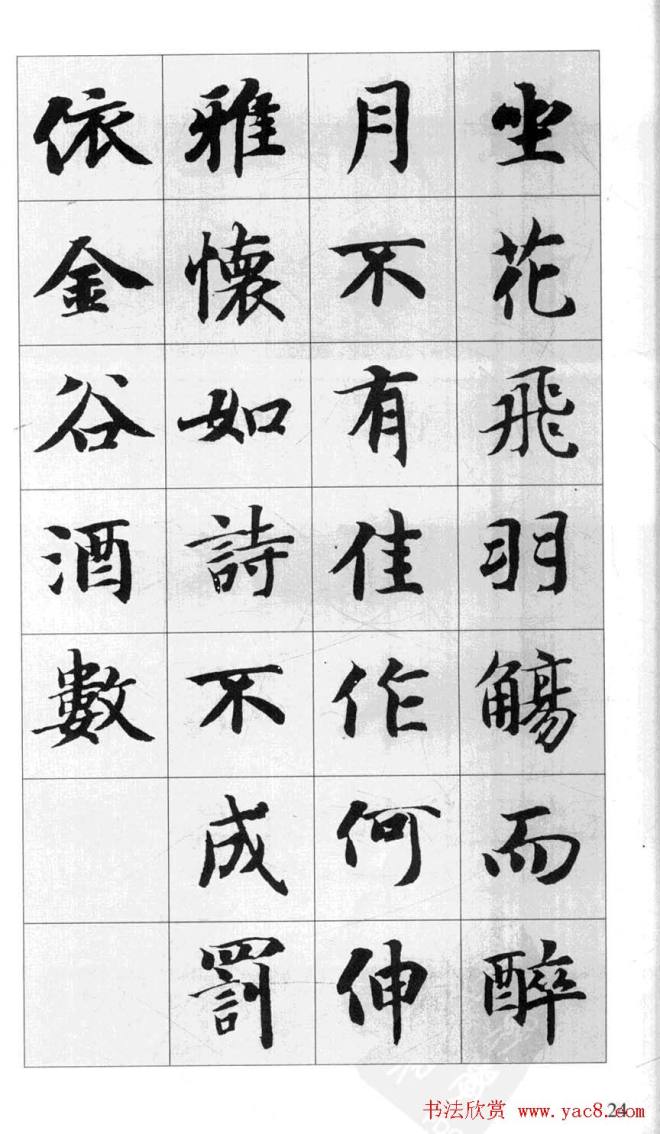 坐花飛羽觴而醉
月不有佳作何伸
雅懷如詩不成罰
依金谷酒數
24
书法欣赏 www.yac8.com